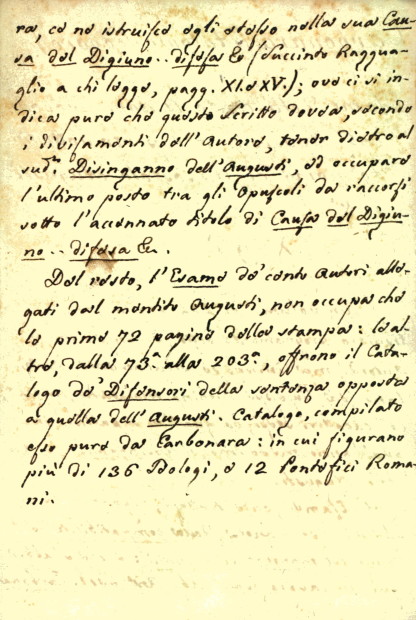 ra, ce ne istruisce egli stesso nella sua Cau-
sa del Digiuno.. difesa &c (Succinto Raggua-
glio a chi legge, pagg. XI. e XV.); ove ci si in-
dica pure che questo Scritto dovea, secondo
i divisamenti dell'Autore, tener dietro al
sud.to Disinganno dell'Augusti, ed occupare
l'ultimo posto tra gli Opuscoli da raccorsi
sotto l'accennato titolo di Causa del Digiu-
no.. difesa &c.
Del resto, l'Esame de' cento Autori alle-
gati dal mentito Augusti, non occupa che
le prime 72 pagine della stampa: le al-
tre, dalla 73.a alla 203.a, offrono il Cata-
logo de' Difensori della sentenza opposta
a quella dell'Augusti. Catalogo, compilato
esso pure da Carbonara: in cui figurano
più di 136 Teologi, e 12 Pontefici Roma-
ni.